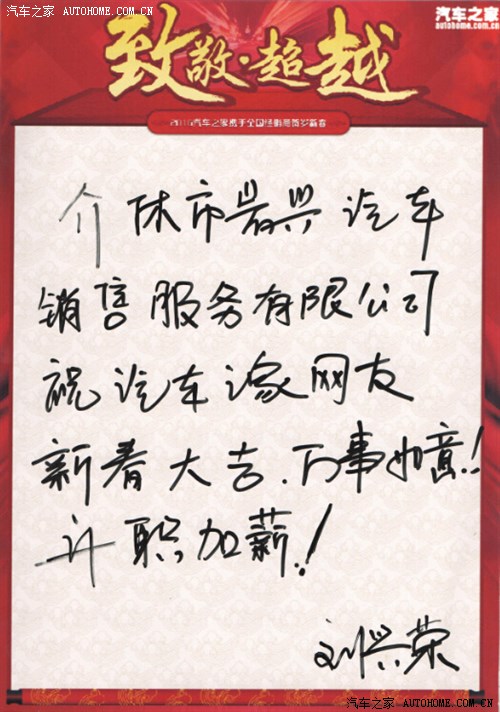 汽车之家 AUTOHOME.COM.CN
汽车之家
autohome.com.cn
致敬·超越
2015汽车之家携手全国经销商贺岁新春
介休市岩兴汽车
销售服务有限公司
祝汽车之家网友
新春大吉.万事如意!!
升职加薪!
刘兴荣
汽车之家 AUTOHOME.COM.CN